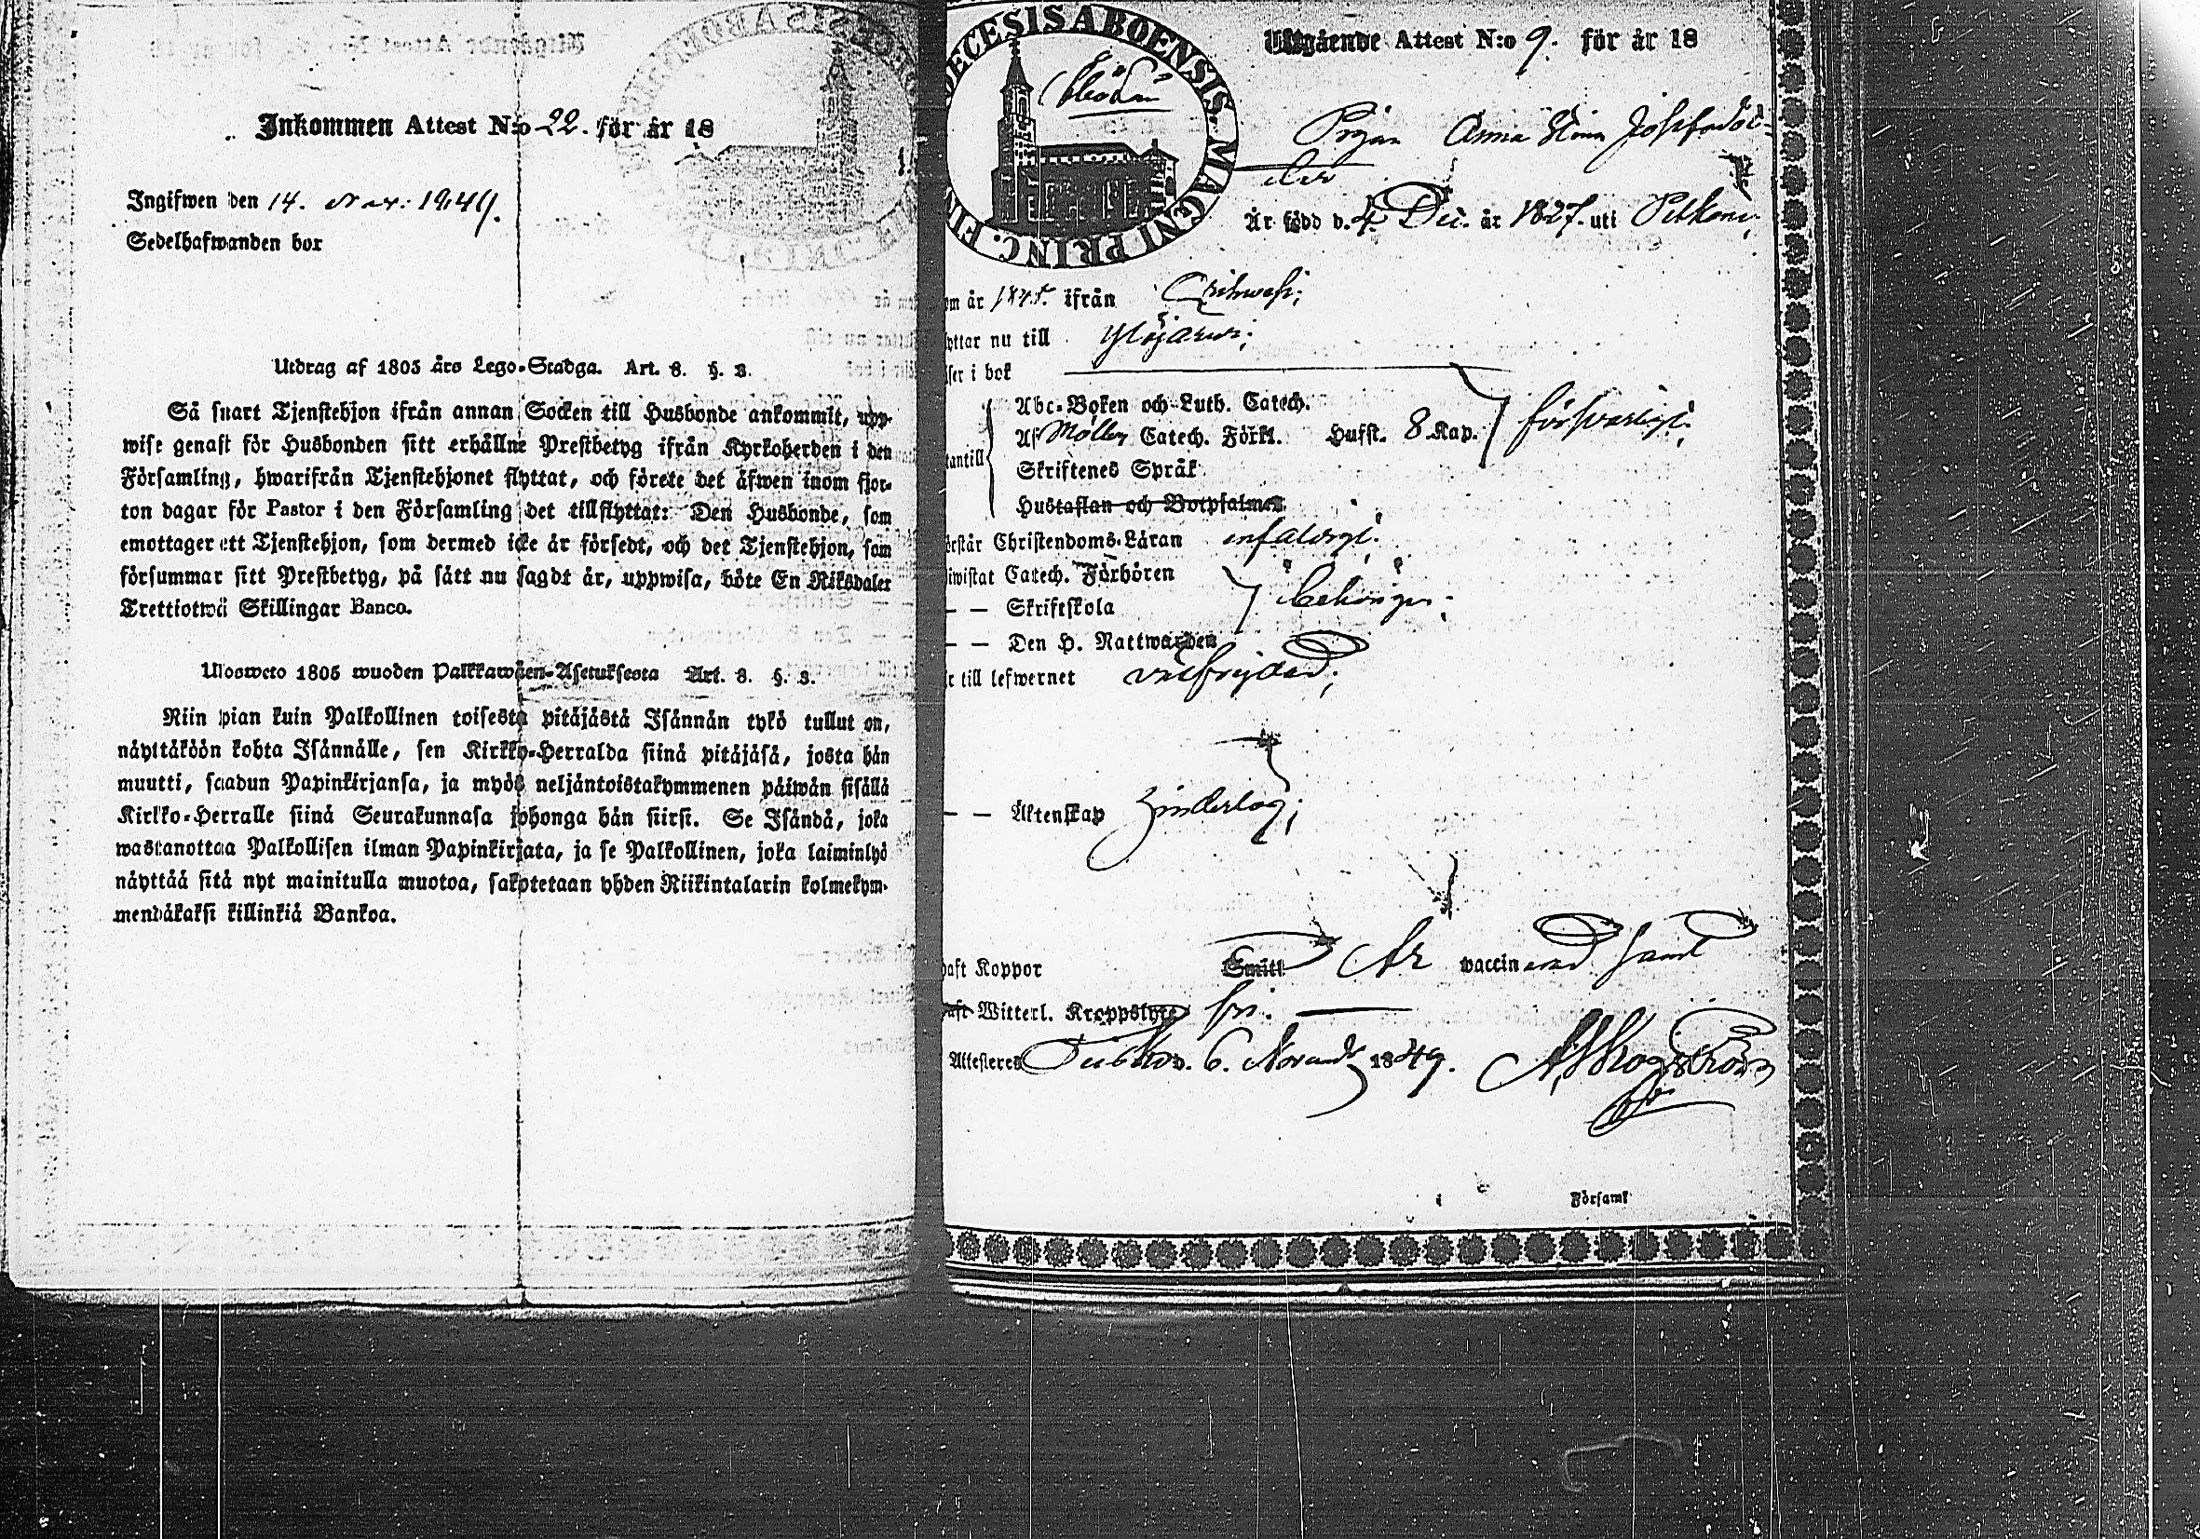 Inkommen Attest N:o 22. för år 18
Ingifwen den 14. Nov. 1849.
Sedelhafwanden bor
Utdrag af 1805 års Lego-Stadga. Art. 8. §. 3.
Så snart Tjenstehjon ifrån annan Socken till Husbonde ankommit, upp-
wise genast för Husbonden sitt erhållne Prestbetyg ifrån Kyrkoherden i den
Församling, hwarifrån Tjenstehjonet flyttat, och förete det äfwen inom fjor-
ton dagar för Pastor i den Församling det tillflyttat: Den Husbonde, som
emottager ett Tjenstehjon, som dermed icke är försedt, och det Tjenstehjon, som
försummar sitt Prestbetyg, på sätt nu sagdt är, uppwisa, böte En Riksdaler
Trettiotwå Skillingar Banco.
Ulosweto 1805 wuoden Palkkawäen-Asetuksesta Art. 8. §. 3.
Niin pian kuin Palkollinen toisesta pitäjästä Isännän tykö tullut on,
näyttäköön kohta Isännälle, sen Kirkko-Herralda siinä pitäjäsä, josta hän
muutti, saadun Papinkirjansa, ja myös neljäntoistakymmenen päiwän sisällä
Kirkko-Herralle siinä Seurakunnasa johonga hän siirsi. Se Isändä, joka
wastanottaa Palkollisen ilman Papinkirjata, ja se Palkollinen, joka laiminlyö
näyttää sitä nyt mainitulla muotoa, sakotetaan yhden Riikintalarin kolmekym-
mendäkaksi killinkiä Bankoa.
DECESIS ABOENSIS. MAGNI PRINC. FIN
Utgående Attest N:o 9. för år 18
Pigan Anna Stina Josefsdot-
ter
Är född d. 4. Dec. år 1827. uti Pelkäne,
om år 184 ifrån
yttar nu till Ylöjärvi;
ser i bok
Abc-Boken och Luth. Catech.
Af Möller Catech. Förkl. Hufst. 8 Kap. försvarligt;
tantill
Skriftenes Språk
Hustaflan och Botpsalmer
örstår Christendoms-Läran enfaldigt;
iwistat Catech. Förhören behörigen;
— — Skriftskola
— — Den H. Nattwarden
r till lefwernet välfrejdad;
— — Äktenskap hinderlog;
haft Koppor Smitt Är vaccinerad samt
haft Witterl. Kroppslyte fri.
Attesteres d. 6. Novemb 1849. A Skogström
Församl